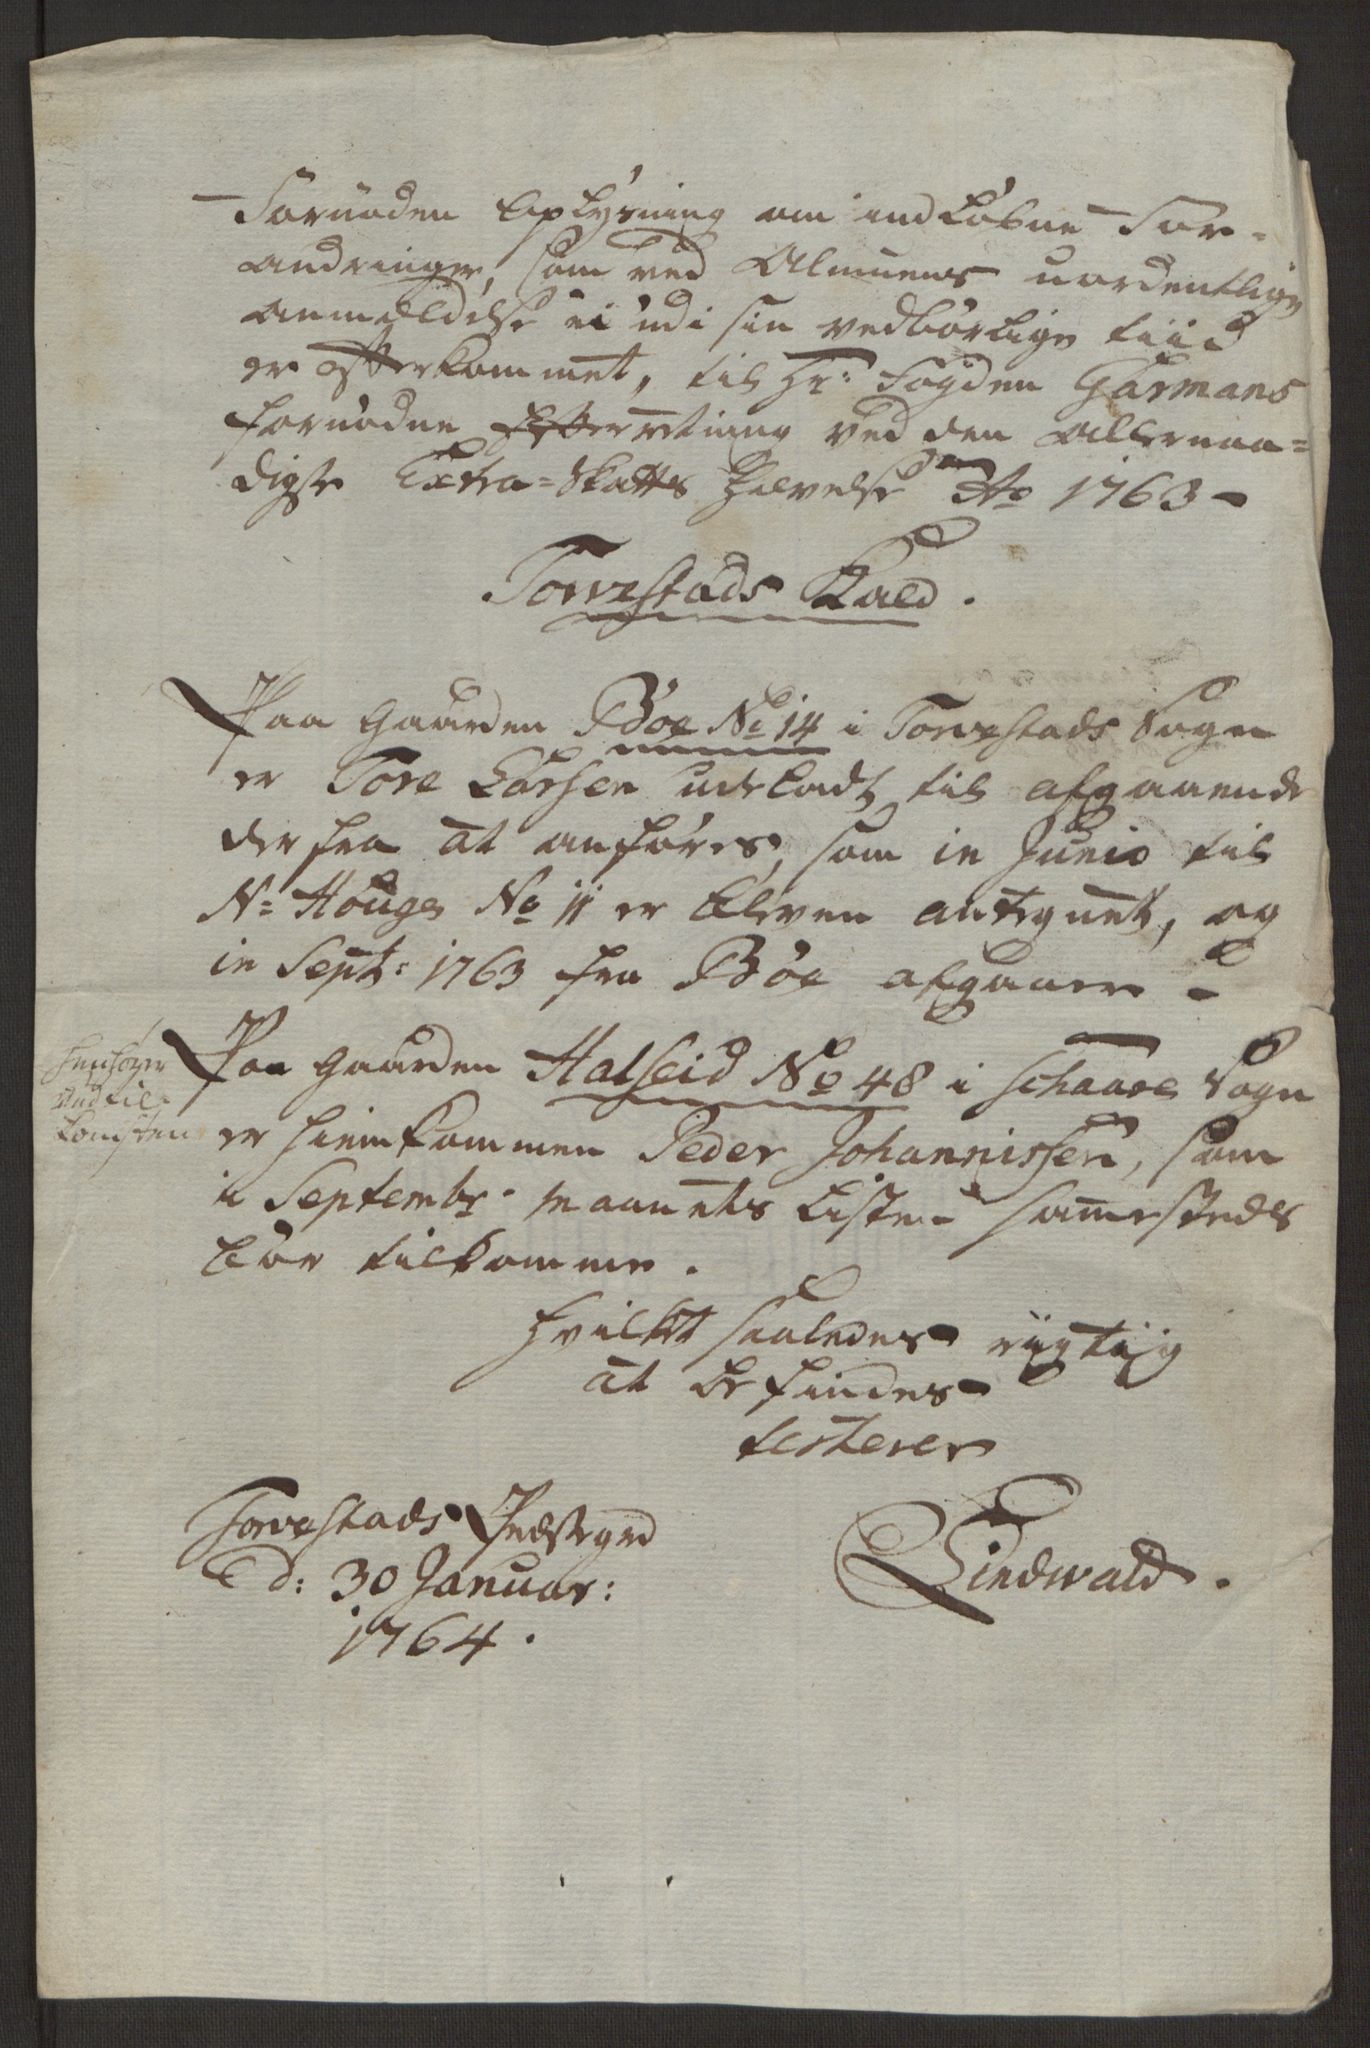 Fornöden Oplysning om indløbne For-
andringer, som ved Almuens uordentlige
anmeldelse ei udi sin vedbörlige tiid
er efterkommet, til Hr: Fogden Garmans
fornödne Efterretning ved den Allernaa=
digst Extra=Skatts Hævelse Ao 1763 -
Torvestads Kald.
Paa Gaarden Böe No 14 i Torvestads Sogn
er Tore Larsen udeladt til afgaaende
derfra at anföres, som in Junio til
N: Houge No 11 er bleven antegnet, og
in Sept: 1763 fra Böe afgaaer -
Paa Gaarden Halseid No 48 i Schaare Sogn
er hiemkommen Peder Johannissen, som
i Septembr. Maanets Liste samesteds
bör tilkomme.
henhörer
ved til-
komsten
Hvilket saaledes rigtig
at befindes
testerer
Torvestads Præstegrd
d: 30 Januar:
1764.
Lindwald.